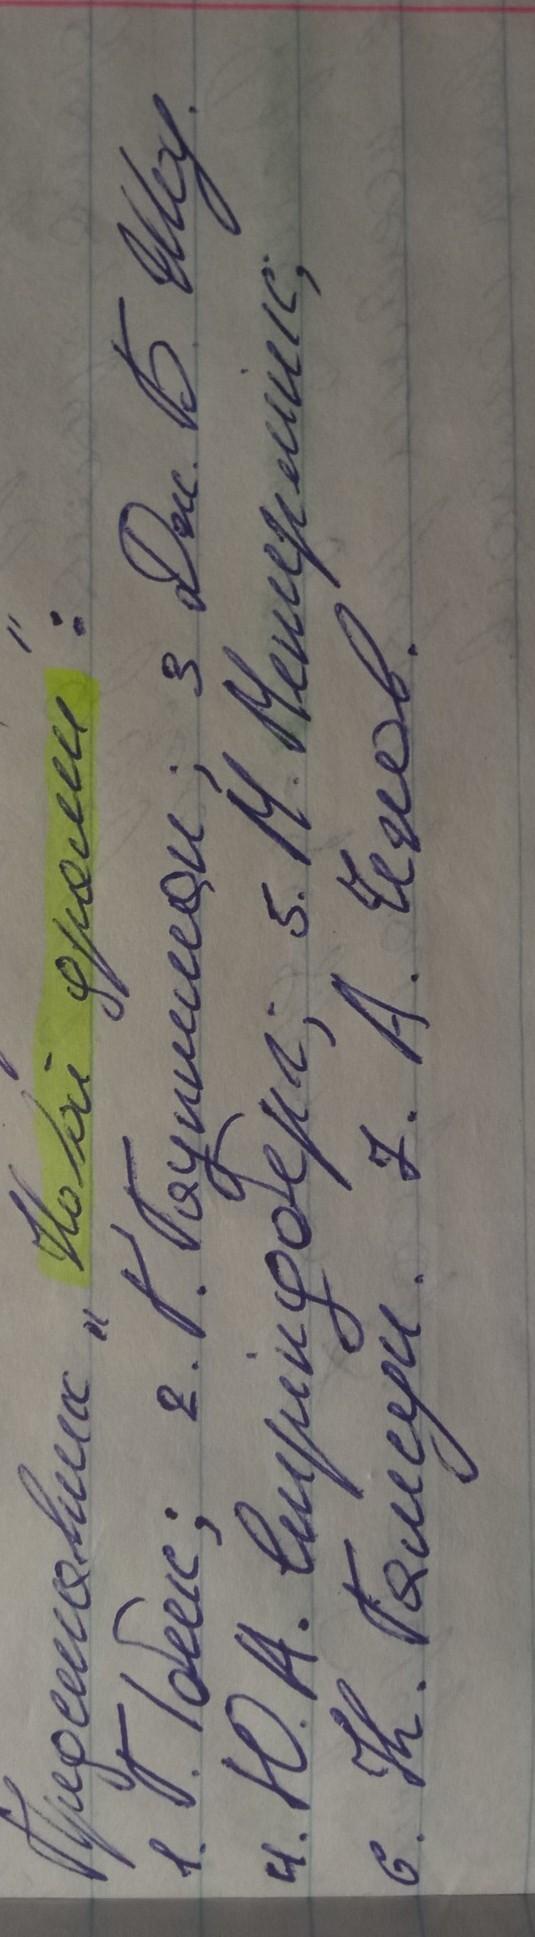 Представник "Нової драми":
1. Г. Ібсен; 2. Г. Гауптман; 3 Дж. Б. Шоу.
4. Ю. А. Стріндберг; 5. М. Метерлінк;
6. К. Гамсун. 7. А. Чехов.